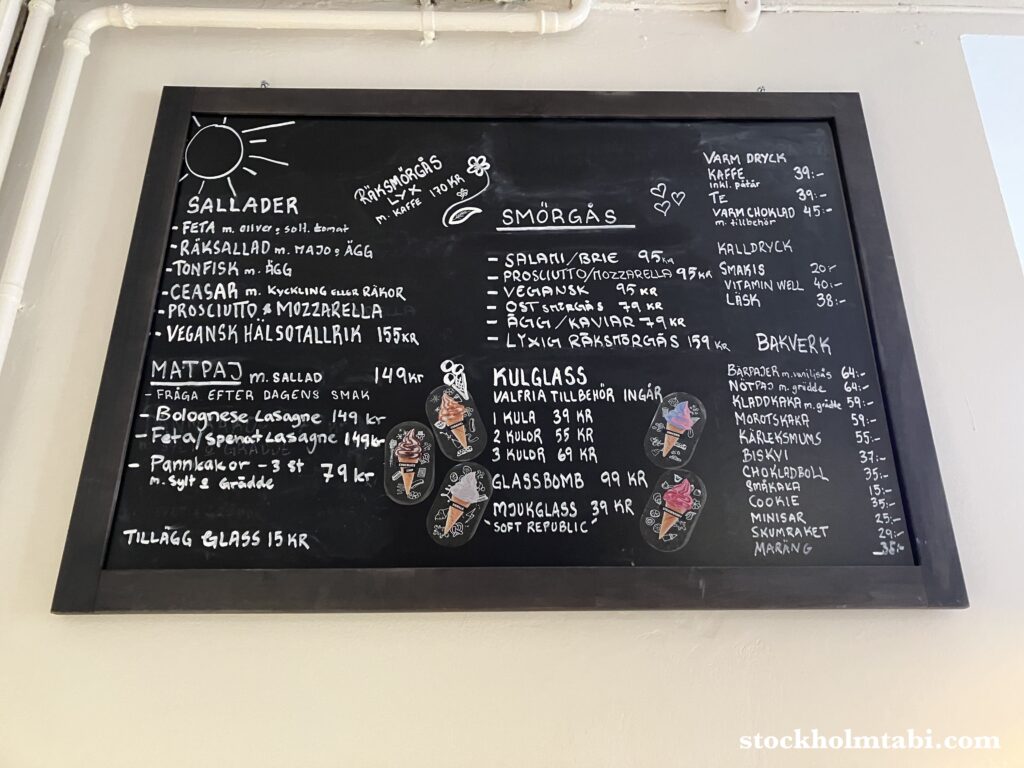 RÄKSMÖRGÅS
LYX
m. KAFFE 170 KR
SALLADER
- FETA m. oliver, solt. tomat
- RÄKSALLAD m. MAJO & ÄGG
- TONFISK m. ÄGG
- CEASAR m. KYCKLING ELLER RÄKOR
- PROSCIUTTO & MOZZARELLA
- VEGANSK HÄLSOTALLRIK 155 KR
MATPAJ m. SALLAD 149 kr
- FRÅGA EFTER DAGENS SMAK
- Bolognese Lasagne 149 kr
- Feta/spenat Lasagne 149 kr
- Pannkakor - 3 st 79 kr
m. Sylt & Grädde
TILLÄGG GLASS 15 KR
SMÖRGÅS
- SALAMI/BRIE 95 KR
- PROSCIUTTO/MOZZARELLA 95 KR
- VEGANSK 95 KR
- OST SMÖRGÅS 79 KR
- ÄGG/KAVIAR 79 KR
- LYXIG RÄKSMÖRGÅS 159 KR
KULGLASS
VALFRIA TILLBEHÖR INGÅR
1 KULA 39 KR
2 KULOR 55 KR
3 KULOR 69 KR
GLASSBOMB 99 KR
MJUKGLASS 39 KR
"SOFT REPUBLIC"
VARM DRYCK
KAFFE 39:-
inkl. påtår
TE 39:-
VARM CHOKLAD 45:-
m. tillbehör
KALLDRYCK
SMAKIS 20:-
VITAMIN WELL 40:-
LÄSK 38:-
BAKVERK
BÄRPAJER m. vaniljsås 64:-
NÖTPAJ m. grädde 64:-
KLADDKAKA m. grädde 59:-
MOROTSKAKA 59:-
KÄRLEKSMUMS 55:-
BISKVI 37:-
CHOKLADBOLL 35:-
SMÅKAKA 15:-
COOKIE 35:-
MINISAR 25:-
SKUMRAKET 29:-
MARÄNG 38:-
stockholmtabi.com